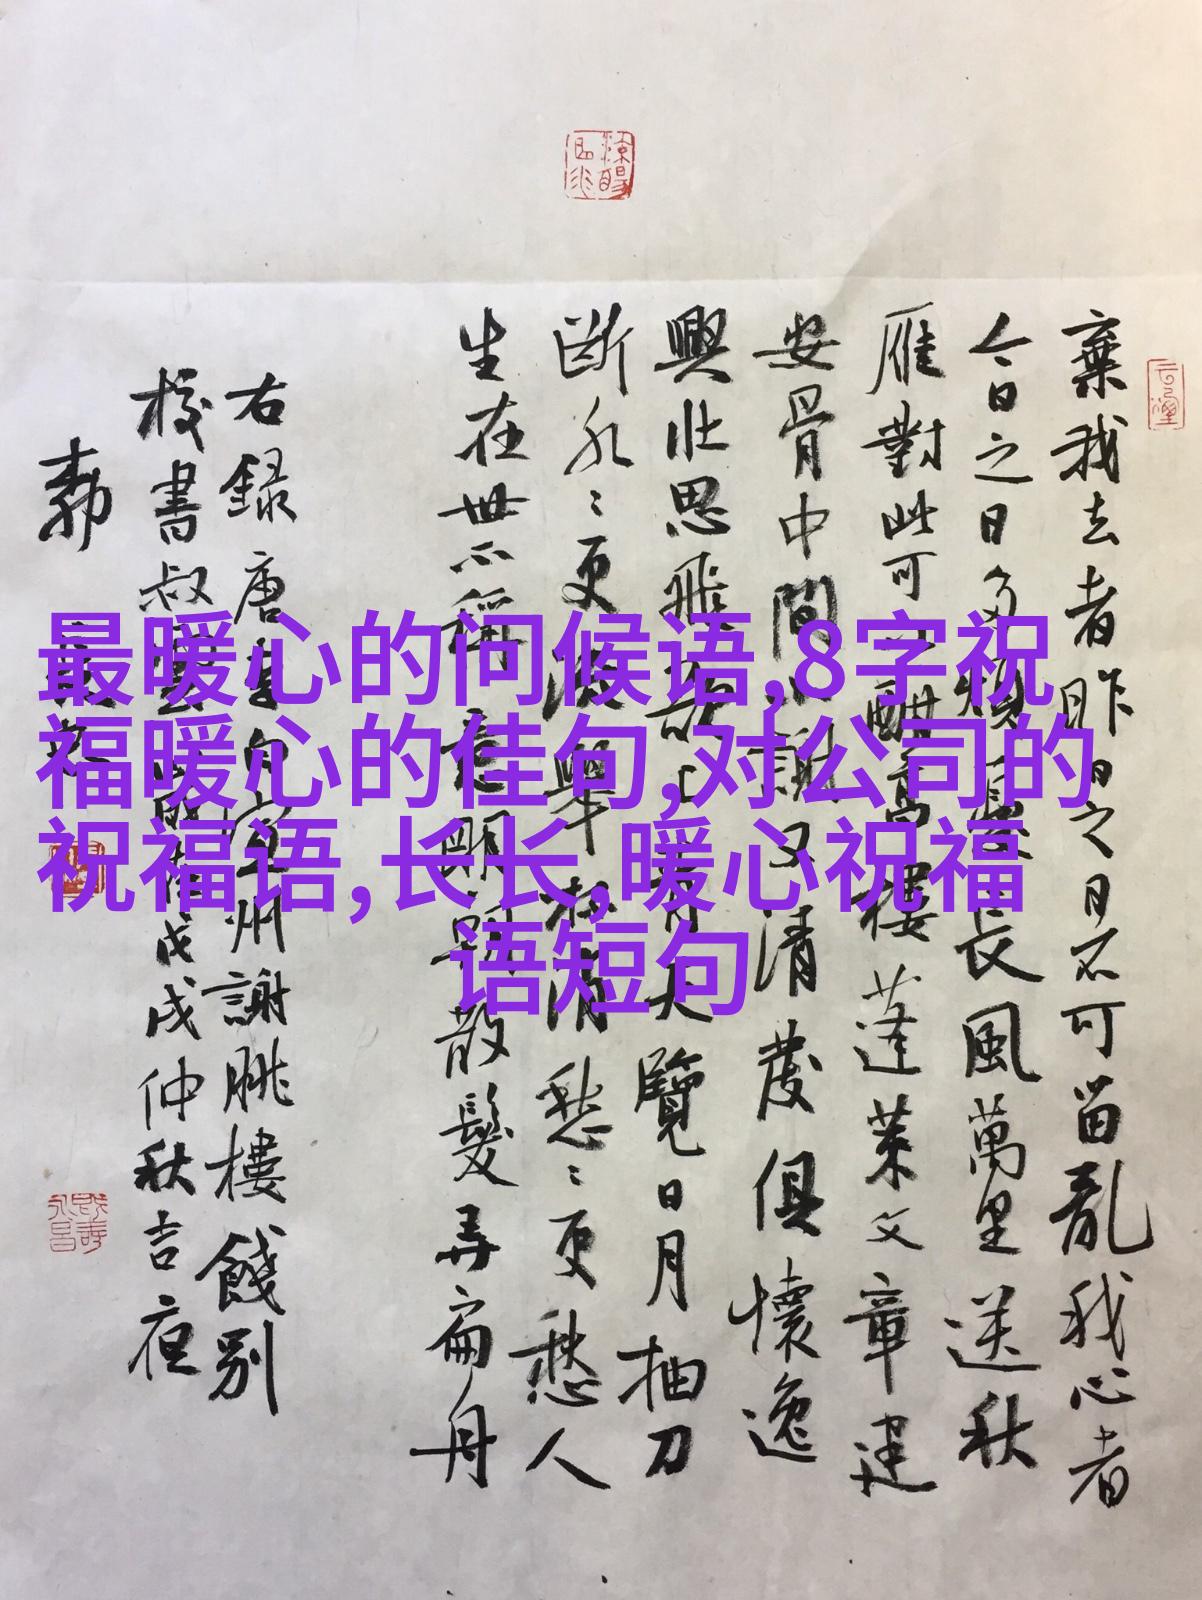 最暖心的问候语,8字祝
福暖心的佳句,对公司的
祝福语,长长,暖心祝福
语短句
棄我去者昨日之日不可留亂我心者
今日之日多煩憂長風萬里送秋
雁對此可以酣高樓蓬萊文章建
安骨中間小謝又清發俱懷逸
興壯思飛欲上青天覽日月抽刀
斷水〻更流舉杯消愁〻更愁人
生在世不稱意明朝散髮弄扁舟
右録唐李白宣州謝朓樓餞別
校書叔雲戊戌仲秋吉夜